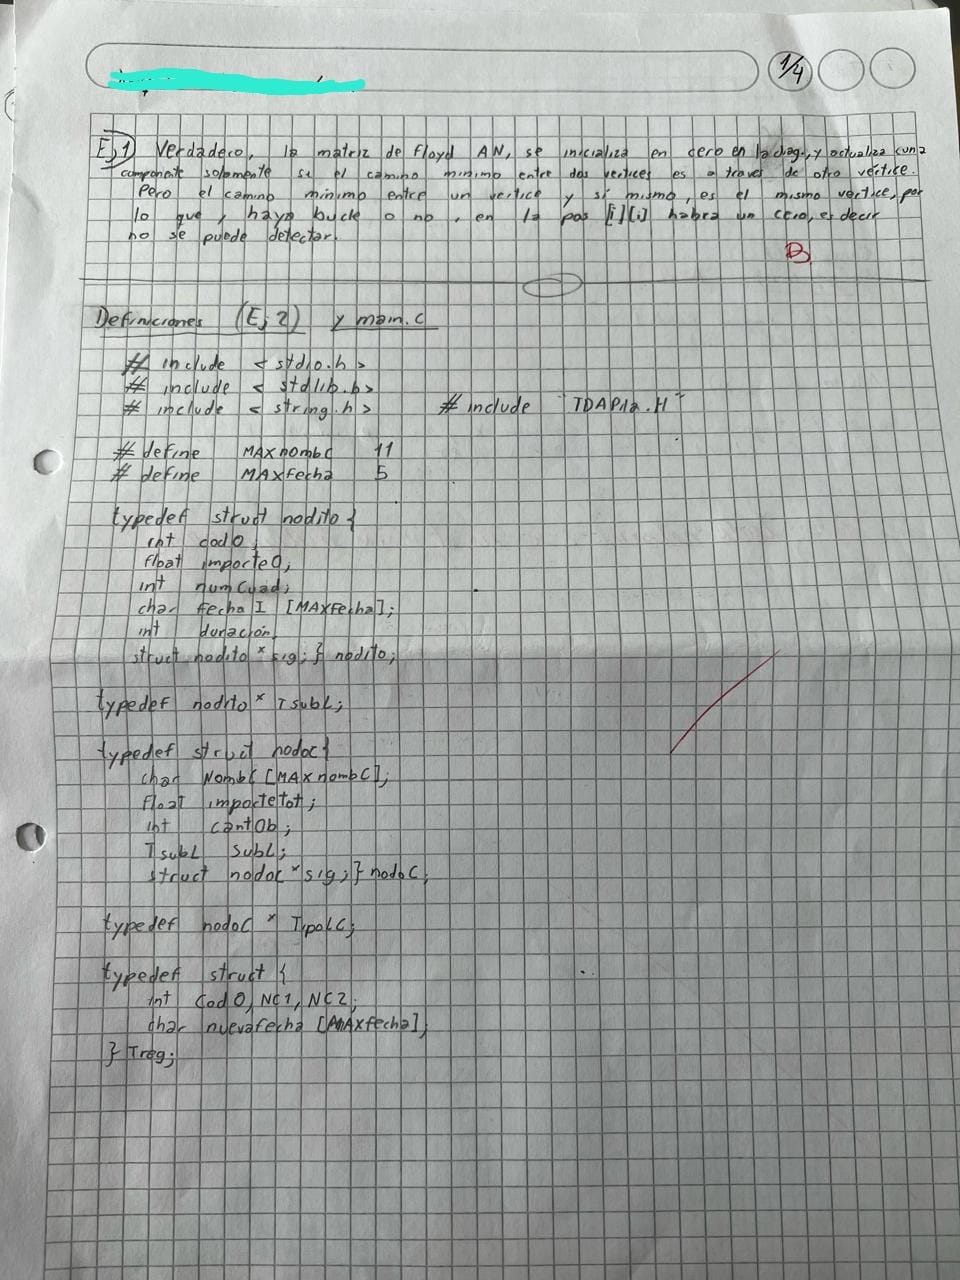 1/4
Ej 1 Verdadero, la matriz de Floyd AN, se inicializa en cero en la diag., y actualiza una
componente solamente si el camino minimo entre dos vertices es a traves de otro vértice.
Pero el camino minimo entre un vertice y sí mismo, es el mismo vertice, por
lo que, haya bucle o no, en la pos [i][i] habra un cero, es decir
no se puede detectar.
B
Definiciones (Ej 2) y main.c
# include < stdio.h >
# include < stdlib.h >
# include < string.h > # include "TDAPila.H"
# define MAXnombC 11
# define MAXfecha 5
typedef struct nodito {
int codO;
float importeO;
int numCuad;
char fechaI [MAXfecha];
int duración;
struct nodito * sig; } nodito;
typedef nodito * TsubL;
typedef struct nodoC {
char NombC [MAXnombC];
float importeTot;
int cantOb;
TsubL subL;
struct nodoC * sig; } nodoC;
typedef nodoC * TipoLC;
typedef struct {
int CodO, NC1, NC2;
char nuevafecha [MAXfecha];
} Treg;